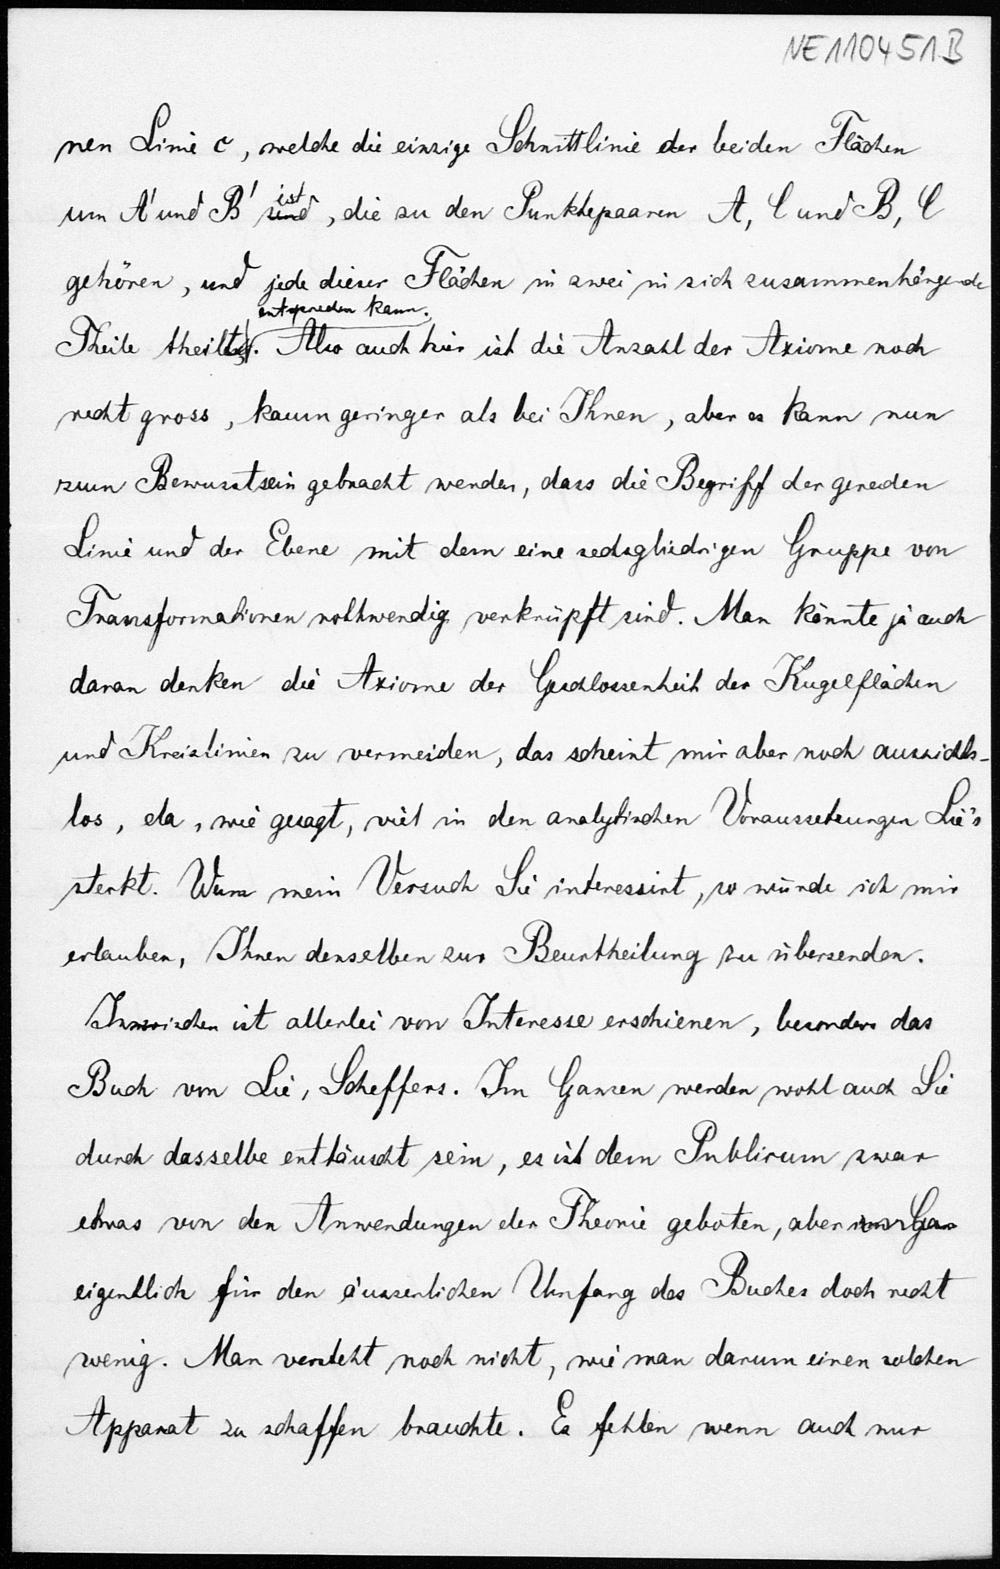 NE110451B
nen Linie c, welche die einzige Schnittlinie der beiden Flächen
ist
um A' und B' sind, die zu den Punktepaaren A, C und B, C
gehören, und jede dieser Flächen in zwei in sich zusammenhängende
entsprechen kann.
Theile theilt. Also auch hier ist die Anzahl der Axiome noch
recht gross, kaum geringer als bei Ihnen, aber es kann nun
zum Bewusstsein gebracht werden, dass die Begriff der geraden
Linie und der Ebene mit dem eine sechsgliedrigen Gruppe von
Transformationen nothwendig verknüpft sind. Man könnte ja auch
daran denken die Axiome der Geschlossenheit der Kugelflächen
und Kreislinien zu vermeiden, das scheint mir aber noch aussichts-
los, da, wie gesagt, viel in den analytischen Voraussetzungen Lie's
steckt. Wenn mein Versuch Sie interessirt, so würde ich mir
erlauben, Ihnen denselben zur Beurtheilung zu übersenden.
Inzwischen ist allerlei von Interesse erschienen, besonders das
Buch von Lie, Scheffers. Im Ganzen werden wohl auch Sie
durch dasselbe enttäuscht sein, es ist dem Publicum zwar
etwas von den Anwendungen der Theorie geboten, aber
eigentlich für den äusserlichen Umfang des Buches doch recht
wenig. Man versteht noch nicht, wie man darum einen solchen
Apparat zu schaffen brauchte. Es fehlen wenn auch nur